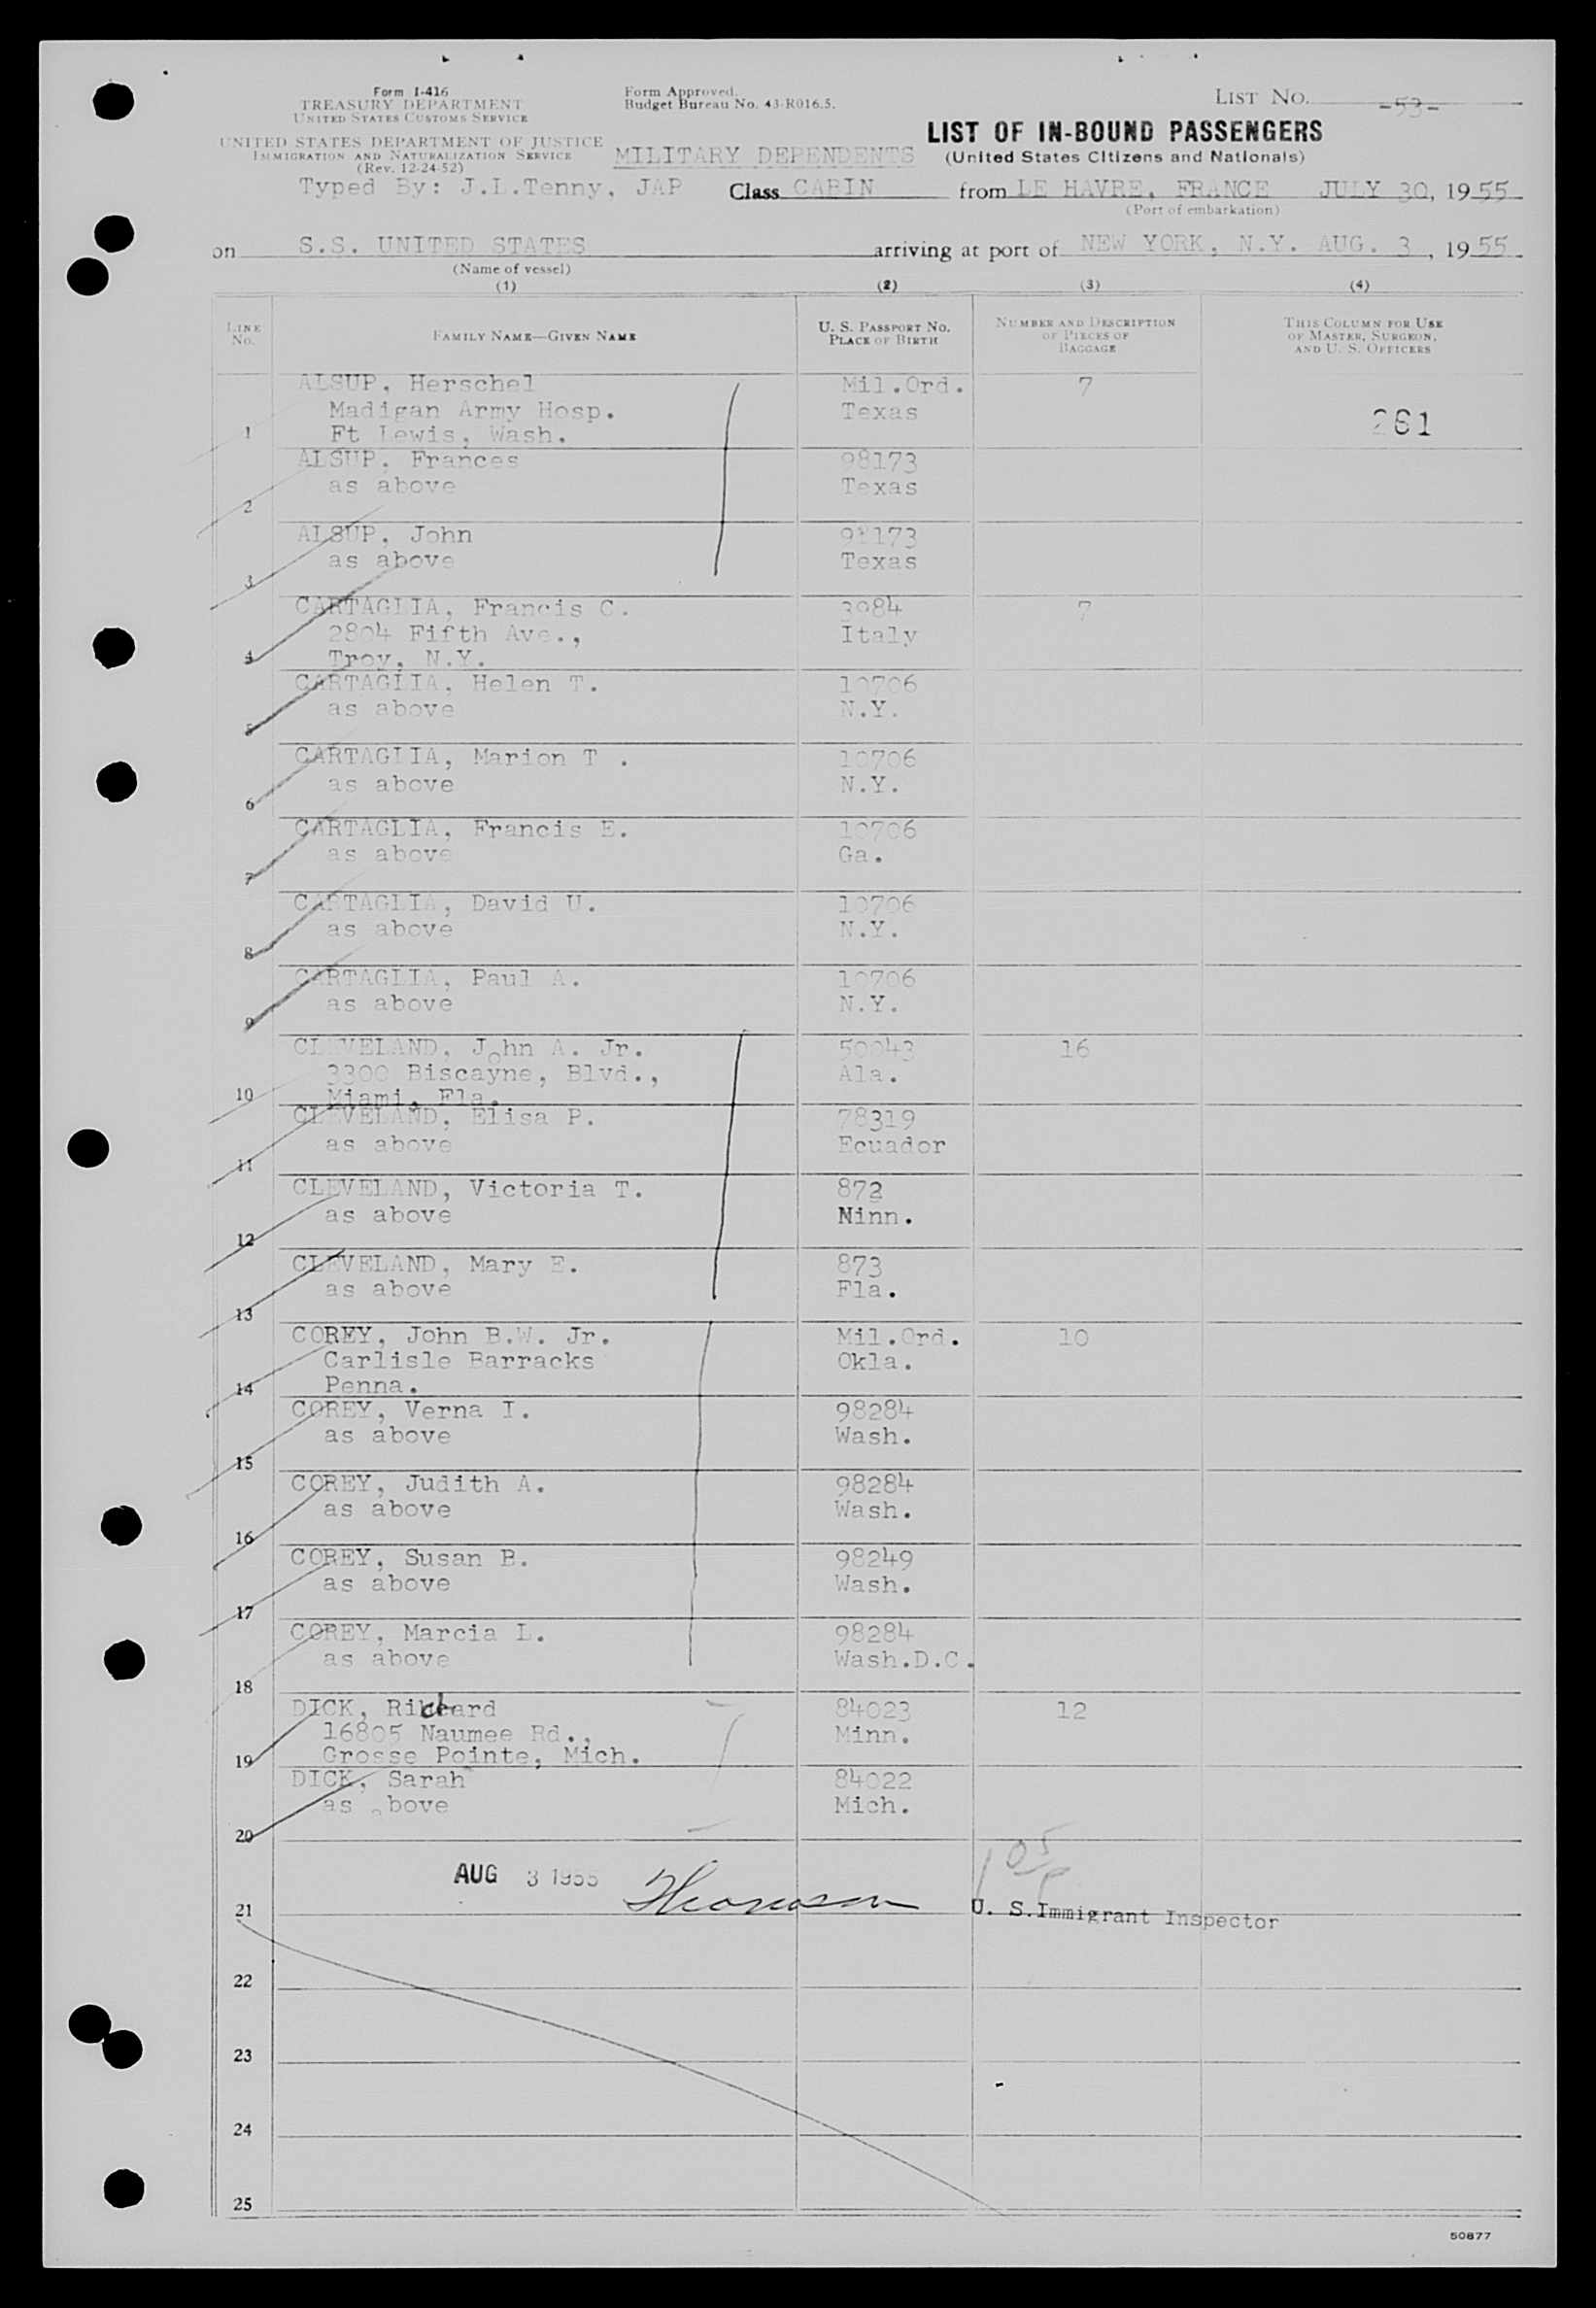 Form I-416
TREASURY DEPARTMENT
UNITED STATES CUSTOMS SERVICE
UNITED STATES DEPARTMENT OF JUSTICE
IMMIGRATION AND NATURALIZATION SERVICE
(Rev. 12-24-52)
Form Approved.
Budget Bureau No. 43-R016.5.
LIST NO. -53-
LIST OF IN-BOUND PASSENGERS
MILITARY DEPENDENTS (United States Citizens and Nationals)
Typed By: J.L.Tenny, JAP Class CABIN from LE HAVRE, FRANCE JULY 30, 1955
(Port of embarkation)
on S.S. UNITED STATES arriving at port of NEW YORK, N.Y. AUG. 3, 1955
(Name of vessel)
(1) (2) (3) (4)
LINE NO. FAMILY NAME—GIVEN NAME U. S. PASSPORT NO. PLACE OF BIRTH NUMBER AND DESCRIPTION OF PIECES OF BAGGAGE THIS COLUMN FOR USE OF MASTER, SURGEON, AND U. S. OFFICERS
ALSUP, Herschel Mil.Ord. 7
Madigan Army Hosp. Texas
1 Ft Lewis, Wash. 261
ALSUP, Frances 98173
as above Texas
2
ALSUP, John 98173
as above Texas
3
CARTAGLIA, Francis C. 3984 7
2804 Fifth Ave., Italy
4 Troy, N.Y.
CARTAGLIA, Helen T. 10706
as above N.Y.
5
CARTAGLIA, Marion T . 10706
as above N.Y.
6
CARTAGLIA, Francis E. 10706
as above Ga.
7
CARTAGLIA, David U. 10706
as above N.Y.
8
CARTAGLIA, Paul A. 10706
as above N.Y.
9
CLEVELAND, John A. Jr. 50043 16
3300 Biscayne, Blvd., Ala.
10 Miami, Fla.
CLEVELAND, Elisa P. 78319
as above Ecuador
11
CLEVELAND, Victoria T. 872
as above Ninn.
12
CLEVELAND, Mary E. 873
as above Fla.
13
COREY, John B.W. Jr. Mil.Ord. 10
Carlisle Barracks Okla.
14 Penna.
COREY, Verna I. 98284
as above Wash.
15
COREY, Judith A. 98284
as above Wash.
16
COREY, Susan B. 98249
as above Wash.
17
COREY, Marcia L. 98284
as above Wash.D.C.
18
DICK, Richard 84023 12
16805 Naumee Rd., Minn.
19 Grosse Pointe, Mich.
DICK, Sarah 84022
as above Mich.
20
AUG 3 1955
21 U. S.Immigrant Inspector
22
23
24
25
50877